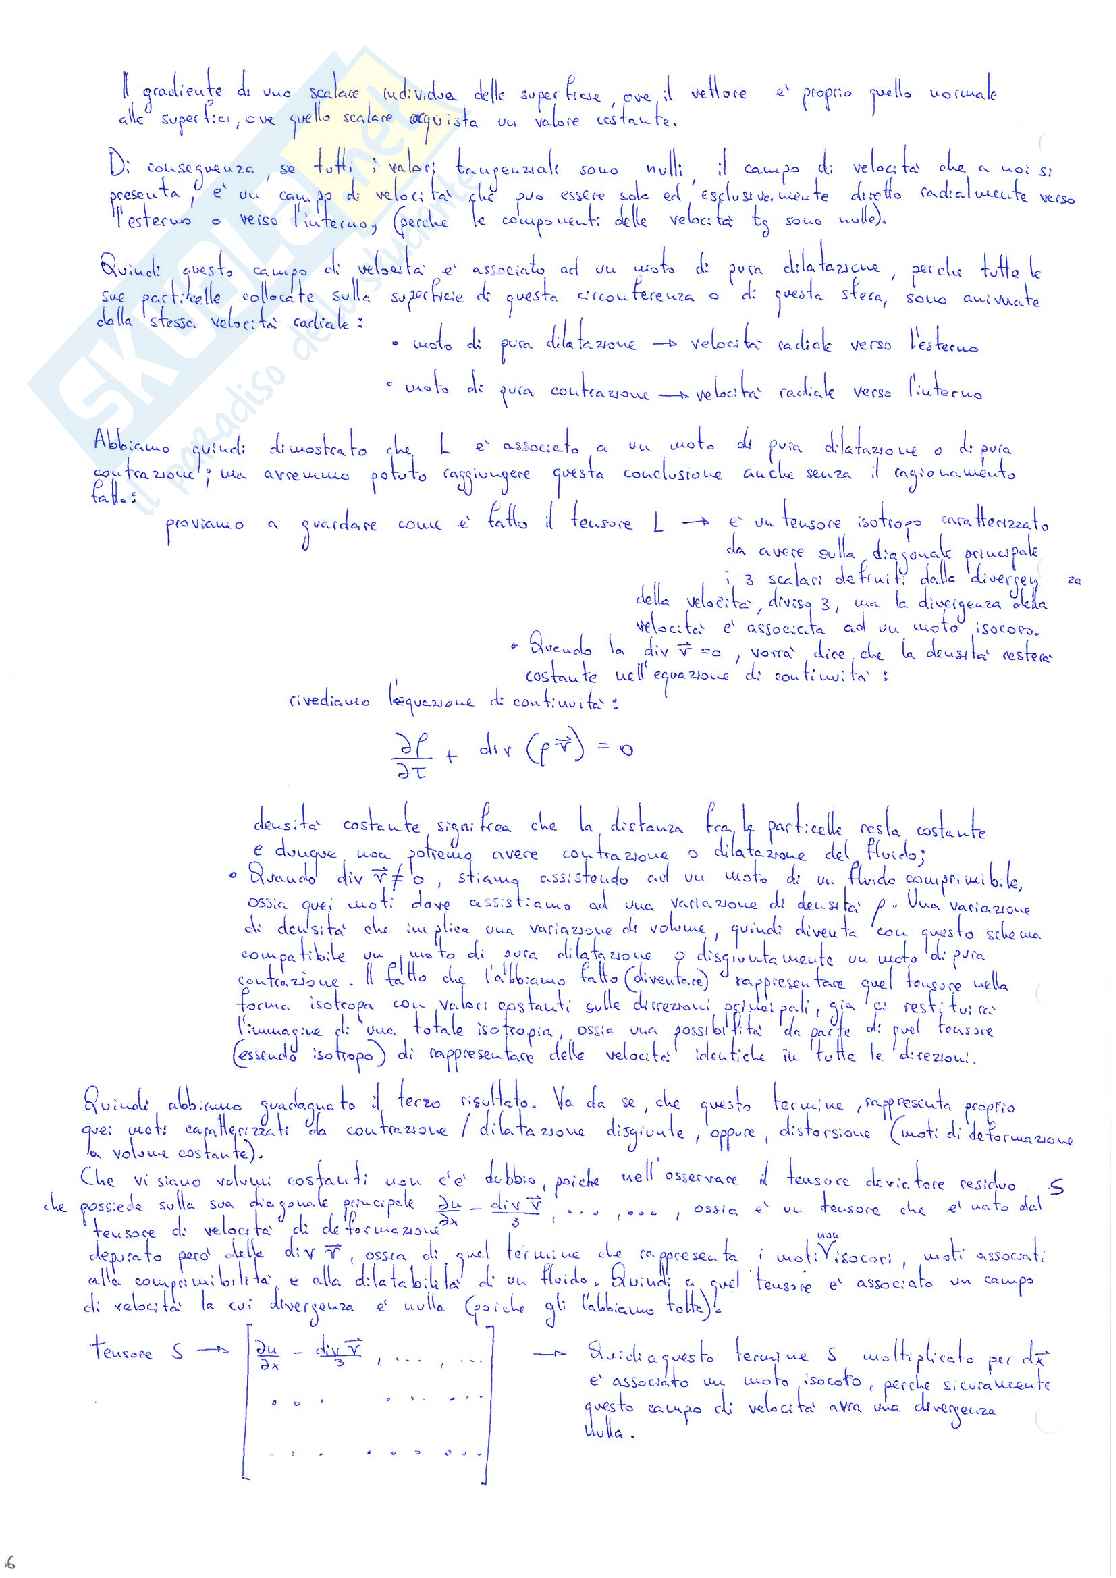 Il gradiente di uno scalare individua delle superfici, ove il vettore e' proprio quello normale
alle superfici, ove quello scalare acquista un valore costante.
Di conseguenza, se tutti i valori tangenziali sono nulli, il campo di velocità che a noi si
presenta, e' un campo di velocità che può essere solo ed esclusivamente diretto radialmente verso
l'esterno o verso l'interno, (perché le componenti delle velocità tg sono nulle).
Quindi questo campo di velocità e' associato ad un moto di pura dilatazione, perché tutte le
sue particelle collocate sulla superficie di questa circonferenza o di questa sfera, sono animate
dalla stessa velocità radiale:
• moto di pura dilatazione → velocità radiale verso l'esterno
• moto di pura contrazione → velocità radiale verso l'interno
Abbiamo quindi dimostrato che L e' associato a un moto di pura dilatazione o di pura
contrazione; ma avremmo potuto raggiungere questa conclusione anche senza il ragionamento
fatto:
proviamo a guardare come è fatto il tensore L → e' un tensore isotropo caratterizzato
da avere sulla diagonale principale
i 3 scalari definiti dalla divergenza
della velocità, diviso 3, ma la divergenza della
velocità e' associata ad un moto isocoro.
• Quando la div v⃗ = 0, vorrà dire che la densità resterà
costante nell'equazione di continuità:
rivediamo l'equazione di continuità:
∂ρ/∂τ + div (ρ v⃗) = 0
densità costante significa che la distanza fra le particelle resta costante
e dunque non potremo avere contrazione o dilatazione del fluido;
• Quando div v⃗ ≠ 0, stiamo assistendo ad un moto di un fluido comprimibile,
ossia quei moti dove assistiamo ad una variazione di densità ρ. Una variazione
di densità che implica una variazione di volume, quindi diventa con questo schema
compatibile un moto di pura dilatazione o disgiuntamente un moto di pura
contrazione. Il fatto che l'abbiamo fatto (diventare) rappresentare quel tensore nella
forma isotropa con valori costanti sulle direzioni principali, già ci restituirà
l'immagine di una totale isotropia, ossia una possibilità da parte di quel tensore
(essendo isotropo) di rappresentare delle velocità identiche in tutte le direzioni.
Quindi abbiamo guadagnato il terzo risultato. Va da se, che questo termine, rappresenta proprio
quei moti caratterizzati da contrazione / dilatazione disgiunte, oppure, distorsione (moti di deformazione
a volume costante).
Che vi siano volumi costanti non c'e' dubbio, poiché nell'osservare il tensore deviatore residuo S
che possiede sulla sua diagonale principale ∂u/∂x - div v⃗/3, ..., ..., ossia e' un tensore che e' nato dal
tensore di velocità di deformazione
depurato però delle div v⃗, ossia di quel termine che rappresenta i moti non isocori, moti associati
alla comprimibilità e alla dilatabilità di un fluido. Quindi a quel tensore e' associato un campo
di velocità la cui divergenza e' nulla (poiché gli l'abbiamo tolta):
tensore S → [ ∂u/∂x - div v⃗/3, ..., ... → Quidi a questo termine S moltiplicato per dx⃗
e' associato un moto isocoro, perché sicuramente
questo campo di velocità avrà una divergenza
nulla.
6
SKUOLA.net
il paradiso dello studente